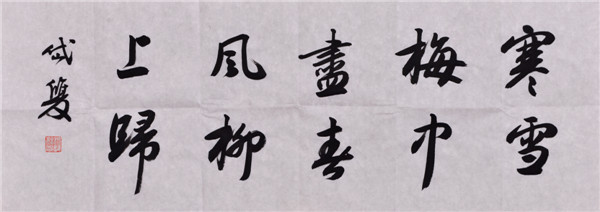 寒雪
梅中
盡春
風柳
上歸
岱